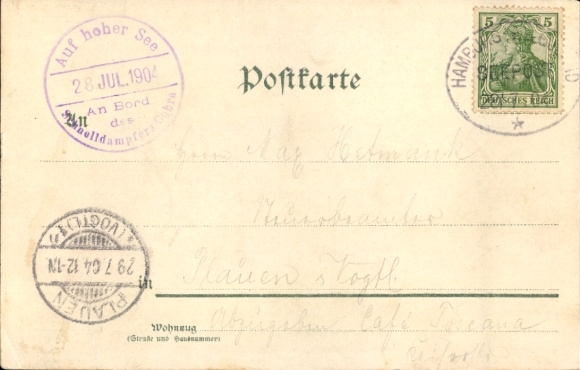 Auf hoher See
28.JUL.1904
An Bord
des
Schnelldampfers Cobra
Postkarte
5
DEUTSCHES REICH
HAMBURG
SEEPOST
An
Herrn Max
Plauen i Vogtl.
in
PLAUEN
(VOGTL.)
29.7.04.12-1N.
Wohnung
(Straße und Hausnummer)
Abzugeben Café Toscana